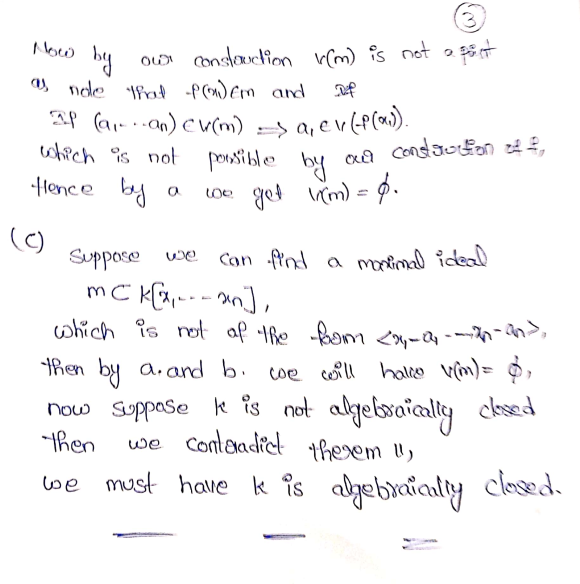 3
Now by our construction v(m) is not a point
as note that f(x1) ∈ m and if
If (a1,...an) ∈ v(m) => a1 ∈ v(f(x1)).
which is not possible by our construction of f,
Hence by a we get v(m) = ϕ.
(c)
Suppose we can find a maximal ideal
m ⊂ k[x1,---xn],
which is not of the form <x1-a1 ---xn-an>,
then by a. and b. we will have v(m) = ϕ,
now suppose k is not algebraically closed
then we contradict therem 11,
we must have k is algebraically closed.